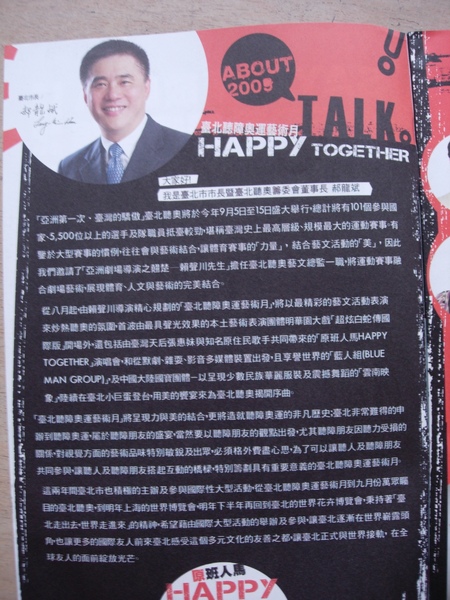 ABOUT
2009
臺北市長
郝龍斌
TALK.
臺北聽障奧運藝術月
HAPPY TOGETHER
大家好!
我是臺北市市長暨臺北聽奧籌委會董事長 郝龍斌
「亞洲第一次、臺灣的驕傲」臺北聽奧將於今年9月5日至15日盛大舉行,總計將有101個參與國
家、5,500位以上的選手及隊職員抵臺較勁,堪稱臺灣史上最高層級、規模最大的運動賽事。有
鑒於大型賽事的慣例,往往會與藝術結合,讓體育賽事的「力量」,結合藝文活動的「美」,因此
我們邀請了「亞洲劇場導演之翹楚—賴聲川先生」擔任臺北聽奧藝文總監一職,將運動賽事融
合劇場藝術,展現體育、人文與藝術的完美結合。
從八月起,由賴聲川導演精心規劃的「臺北聽障奧運藝術月」,將以最精彩的藝文活動表演
來炒熱聽奧的氛圍,首波由最具聲光效果的本土藝術表演團體明華園大戲「超炫白蛇傳國
際版」開場外,還包括由臺灣天后張惠妹與知名原住民歌手共同帶來的「原班人馬HAPPY
TOGETHER」演唱會,和從默劇、雜耍、影音多媒體裝置出發,且享譽世界的「藍人組(BLUE
MAN GROUP)」,及中國大陸國寶團體—以呈現少數民族華麗服裝及震撼舞蹈的「雲南映
象」陸續在臺北小巨蛋登台,用美的饗宴來為臺北聽奧揭開序曲。
「臺北聽障奧運藝術月」將呈現力與美的結合,更將造就聽障奧運的非凡歷史;臺北非常難得的申
辦到聽障奧運,屬於聽障朋友的盛宴,當然要以聽障朋友的觀點出發,尤其聽障朋友因聽力受損的
關係,對視覺方面的藝術品味特別敏銳及出眾,必須格外費盡心思,為了可以讓聽人及聽障朋友
共同參與,讓聽人及聽障朋友搭起互動的橋樑,特別籌劃具有重要意義的臺北聽障奧運藝術月。
這兩年間臺北市也積極的主辦及參與國際性大型活動,從臺北聽障奧運藝術月到九月份萬眾矚
目的臺北聽奧,到明年上海的世界博覽會,明年下半年再回到臺北的世界花卉博覽會,秉持著「臺
北走出去,世界走進來」的精神,希望藉由國際大型活動的舉辦及參與,讓臺北逐漸在世界嶄露頭
角,也讓更多的國際友人前來臺北感受這個多元文化的友善之都,讓臺北正式與世界接軌,在全
球友人的面前綻放光芒。
原班人馬
HAPPY